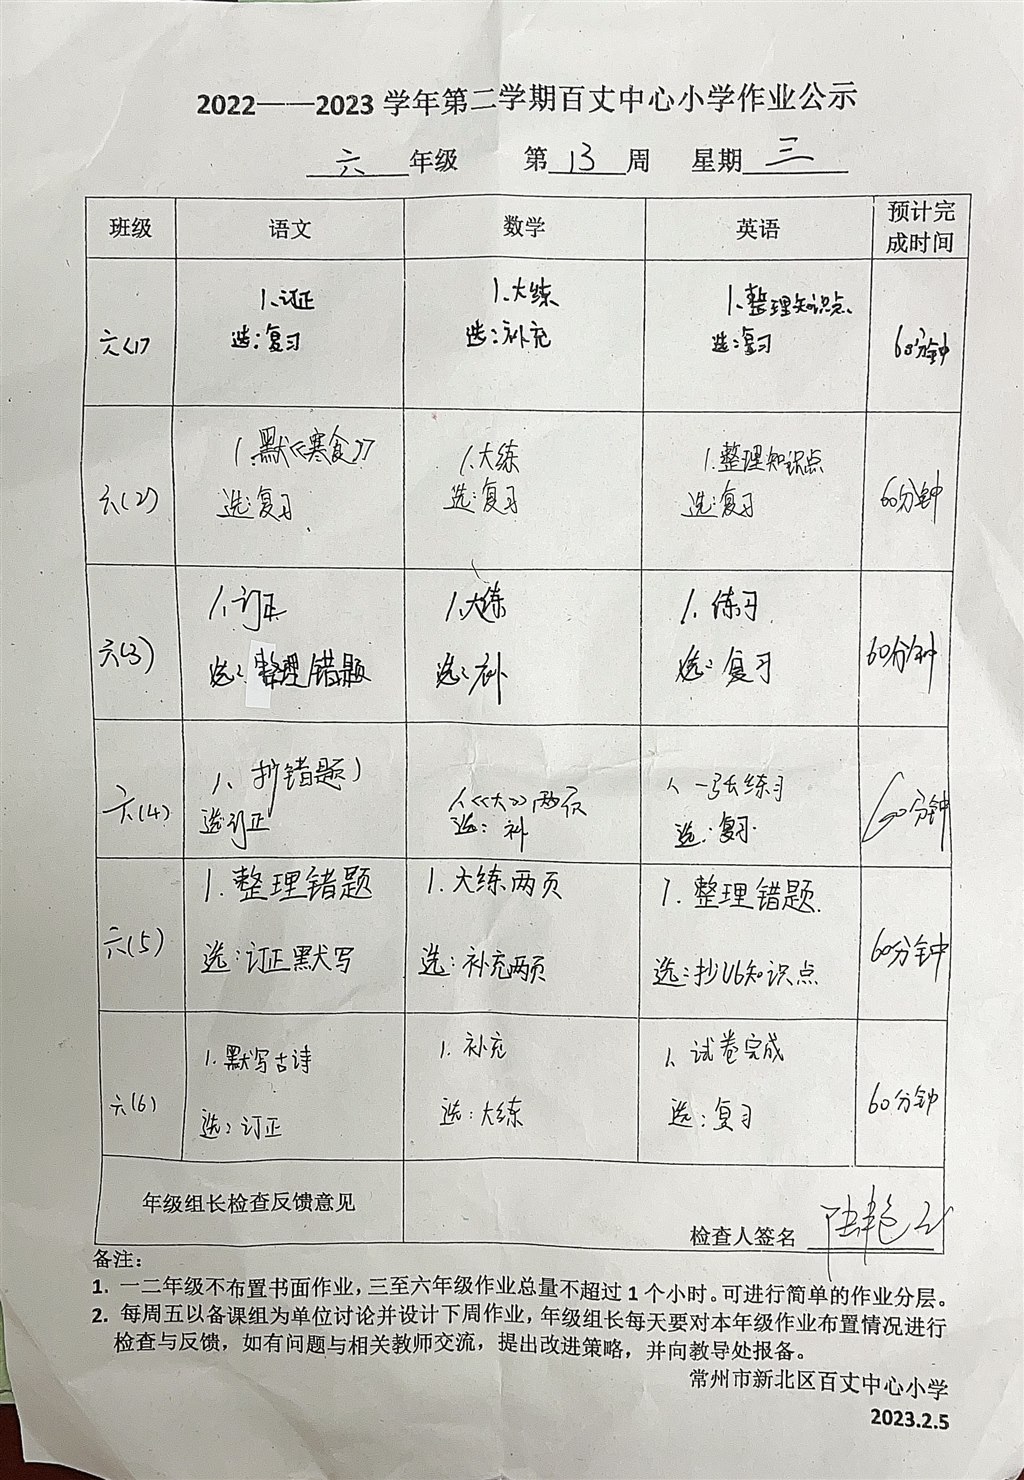 2022——2023 学年第二学期百丈中心小学作业公示
六 年级 第 13 周 星期 三
班级 语文 数学 英语 预计完成时间
六(1)
1.订正
选:复习
1.大练
选:补充
1.整理知识点
选:复习
60分钟
六(2)
1.默《寒食》
选:复习
1.大练
选:复习
1.整理知识点
选:复习
60分钟
六(3)
1.订正
选:整理错题
1.大练
选:补
1.练习
选:复习
60分钟
六(4)
1、抄错题
选:订正
1.《大》两页
选:补
1.一张练习
选:复习
60分钟
六(5)
1.整理错题
选:订正默写
1.大练两页
选:补充两页
1.整理错题
选:抄U6知识点
60分钟
六(6)
1.默写古诗
选:订正
1.补充
选:大练
1.试卷完成
选:复习
60分钟
年级组长检查反馈意见
检查人签名
备注:
1. 一二年级不布置书面作业,三至六年级作业总量不超过 1 个小时。可进行简单的作业分层。
2. 每周五以备课组为单位讨论并设计下周作业,年级组长每天要对本年级作业布置情况进行
检查与反馈,如有问题与相关教师交流,提出改进策略,并向教导处报备。
常州市新北区百丈中心小学
2023.2.5